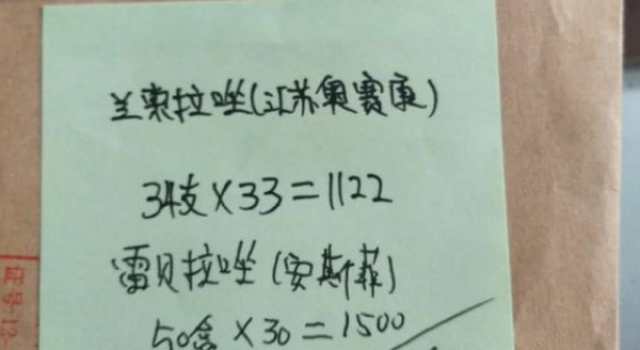 兰索拉唑(江苏奥赛康)
34支×33=1122
雷贝拉唑(安斯菲)
50盒×30=1500
证号12